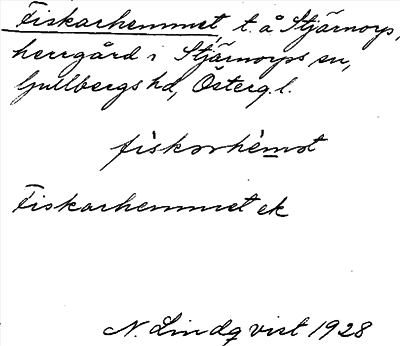 Fiskarhemmet, t. å Stjärnorp,
herrgård i Stjärnorps sn,
Gullbergs hd, Österg. l.
fiskarhèmət
Fiskarhemmet ek
N. Lindqvist 1928